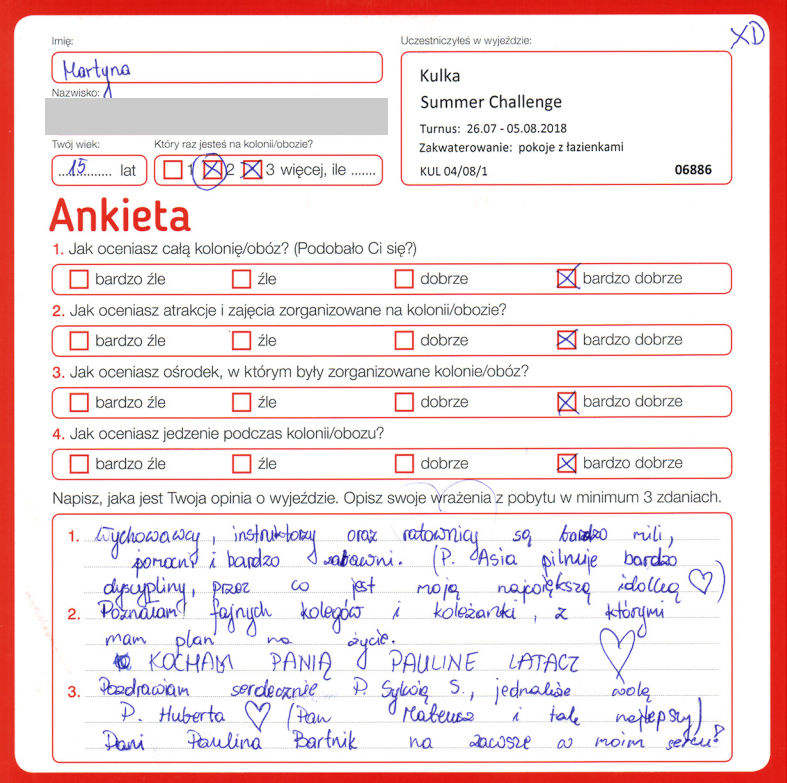 XD
Imię:
Martyna
Nazwisko:
Uczestniczyłeś w wyjeździe:
Kulka
Summer Challenge
Turnus: 26.07 - 05.08.2018
Zakwaterowanie: pokoje z łazienkami
KUL 04/08/1 06886
Twój wiek:
15 lat
Który raz jesteś na kolonii/obozie?
1 2 3 więcej, ile .......
Ankieta
1. Jak oceniasz całą kolonię/obóz? (Podobało Ci się?)
bardzo źle źle dobrze bardzo dobrze
2. Jak oceniasz atrakcje i zajęcia zorganizowane na kolonii/obozie?
bardzo źle źle dobrze bardzo dobrze
3. Jak oceniasz ośrodek, w którym były zorganizowane kolonie/obóz?
bardzo źle źle dobrze bardzo dobrze
4. Jak oceniasz jedzenie podczas kolonii/obozu?
bardzo źle źle dobrze bardzo dobrze
Napisz, jaka jest Twoja opinia o wyjeździe. Opisz swoje wrażenia z pobytu w minimum 3 zdaniach.
1. Wychowawcy, instruktorzy oraz ratownicy są bardzo mili,
pomocni i bardzo zabawni. (P. Asia pilnuje bardzo
dyscypliny, przez co jest moją największą idolką ♡)
2. Poznałam fajnych kolegów i koleżanki, z którymi
mam plan na życie.
KOCHAM PANIĄ PAULINE LATACZ ♡
3. Pozdrawiam serdecznie P. Sylwią S., jednakże wolę
P. Huberta ♡ (Pan Mateusz i tak najlepszy)
Pani Paulina Bartnik na zawsze w moim sercu!